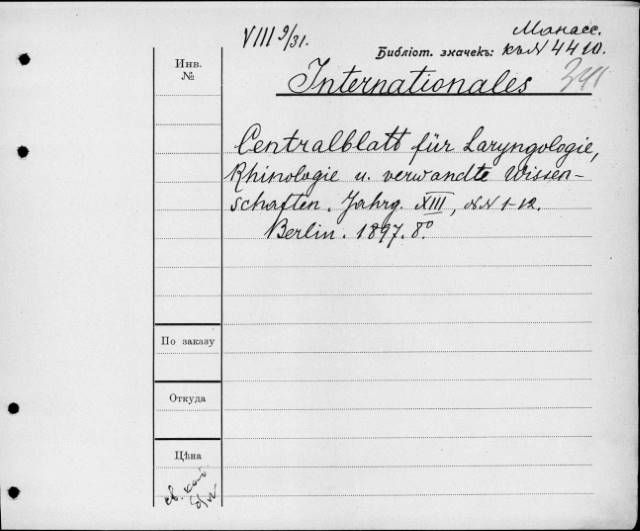 VIII 9/31.
Манасс.
Библіот. значекъ: къ N 4410.
Инв.
№
Internationales
341
Centralblatt für Laryngologie,
Rhinologie u. verwandte Wissen-
schaften. Jahrg. XIII, NN 1-12.
Berlin. 1897. 8º
По заказу
Откуда
Цѣна